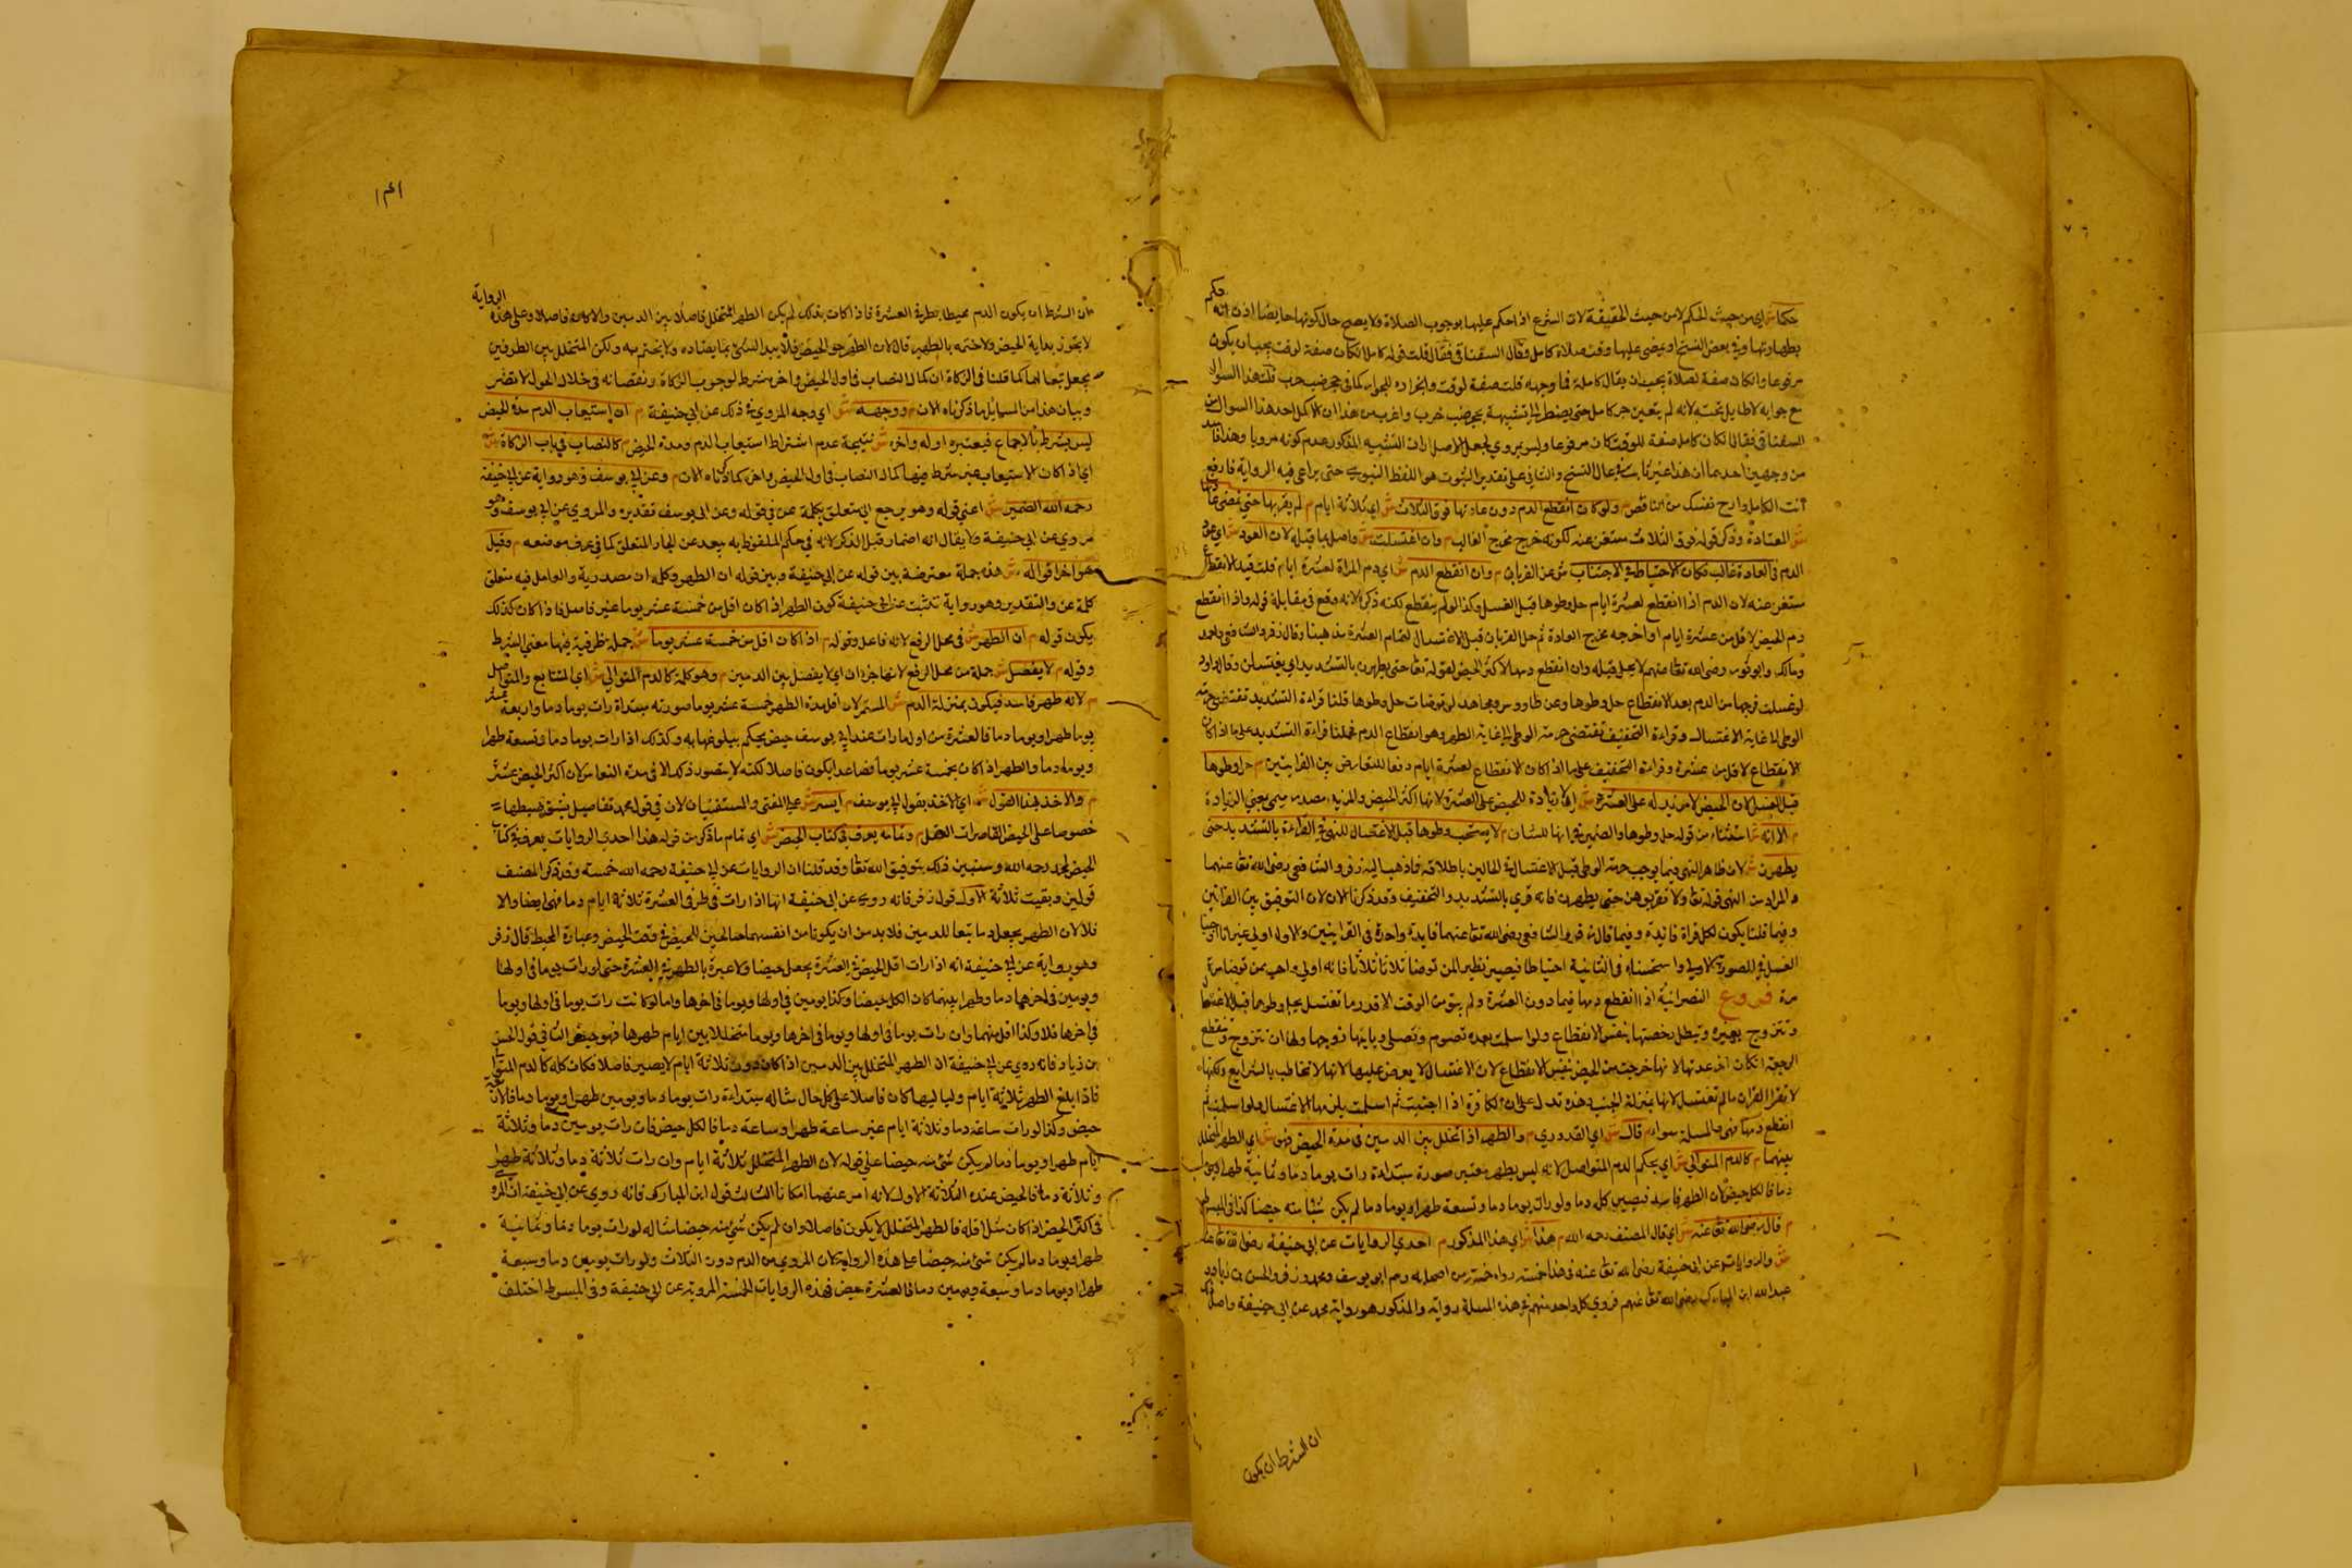 حكما ش اي من حيث الحكم لا من حيث الحقيقة لان الشرع اذا حكم عليها بوجوب الصلاة فلا يصح حال كونها حايضا اذن انه حكم
بطهارتها وفي بعض النسخ او يمضي عليها وقت صلاة كامل وقال السغناقي فقال قلت قوله كاملا لكان صفة لوقت يجب ان يكون
مرفوعا وان كان صفة لصلاة يجب ان يقال كاملة فما وجهه قلت صفة لوقت وانجراره للجوار كما في جحر ضب خرب قلت هذا السوال
مع جوابه لا طايل تحته لانه لم يتعين جر كامل حتى يضطر الى تشبيهه بجحر ضب خرب واغرب من هذا ان الاكمل اخذ هذا السوال من
السغناقي فقال لكان كامل صفة للوقت كان مرفوعا وليس بمروي
من وجهين احدهما ان هذا غير ثابت في عامة النسخ والثاني على تقدير الثبوت هو اللفظ النبوي حتى يراعى فيه الرواية فارفع
انت الكامل وارح نفسك من الناقص م ولو كان انقطع الدم دون عادتها فوق الثلاث ش اي ثلاثة ايام م لم يقربها حتى تمضي عادتها
ش المعتادة وذكر قوله فوق الثلاث مستغن عنه لكونه خرج مخرج الغالب م وان اغتسلت ش واصل بما قبله لان العود ش اي عود
الدم في العادة غالب فكان الاحتياط في الاجتناب ش عن القربان م وان انقطع الدم ش اي دم المراة لعشرة ايام قلت قيد الانقطاع
مستغن عنه لان الدم اذا انقطع لعشرة ايام حل وطوها قبل الغسل وكذا لو لم ينقطع لكنه ذكر لانه وقع في مقابلة قوله واذا انقطع
دم الحيض لاقل من عشرة ايام او اخرجه مخرج العادة ثم حل القربان قبل الاغتسال لتمام العشرة مذهبنا وقال زفر والشافعي واحمد
ومالك وابو ثور رضي الله تعا عنهم لا يحل قبله وان انقطع دمها لاكثر الحيض لقوله تعا حتى يطهرن بالتشديد اي يغتسلن وقال داود
لو غسلت فرجها من الدم بعد الانقطاع حل وطوها وعن طاووس ومجاهد لو توضات حل وطوها قلنا قراءة التشديد تقتضي حرمة
الوطي الى غاية الاغتسال وقراءة التخفيف تقتضي حرمة الوطي الى غاية الطهر وهو انقطاع الدم فحملنا قراءة التشديد على ما اذا كان
الانقطاع لاقل من عشرة وقراءة التخفيف على ما اذا كان الانقطاع لعشرة ايام دفعا للتعارض بين القرايتين م حل وطوها
قبل الغسل لان الحيض لا مزيد له على العشرة ش اي لا زيادة للحيض على العشرة لانها اكثر الحيض والمزيد مصدر ميمي بمعنى الزيادة
م الا انه ش استثناء من قوله حل وطوها والضمير في انه للشان م لا يستحب وطوها قبل الاغتسال للنهي في القراءة بالتشديد حتى
يطهرن ش لان ظاهر النهي فيها يوجب حرمة الوطي قبل الاغتسال في الحالين باطلاقه فاذهب اليه زفر والشافعي رضي الله تعا عنهما
والمراد من النهي قوله تعا ولا تقربوهن حتى يطهرن فانه قري بالتشديد والتخفيف وقد ذكرنا الان لان التوفيق بين القراتين
وفيما قلنا يكون لكل قراة فائدة وفيما قال زفر والشافعي رضي الله تعا عنهما فايدة واحدة في القرايتين والاول اولى
الغسل في الصورة الاولى واستحسناه في الثانية احتياطا فيصير نظير لمن توضا ثلاثا ثلاثا فانه اولى واحب ممن توضا مرة
مرة فروع النصرانية اذا انقطع دمها فيما دون العشرة ولم يبق من الوقت الا قدر ما تغتسل يحل وطوها قبل الاغتسال
وتتزوج بغيره وتبطل رخصتها بنفس الانقطاع ولو اسلمت بعده تصوم وتصلي وياتيها زوجها ولها ان تتزوج وتنقطع
الرجعة ان كان اخر عدتها لانها خرجت من الحيض بنفس الانقطاع لان الاغتسال لا يعرض عليها لانها لا تخاطب بالشرايع ولكنها
لا تقرا القران ما لم تغتسل لانها بمنزلة الجنب وهذه تدل على ان الكافرة اذا اجنبت ثم اسلمت يلزمها الاغتسال ولو اسلمت ثم
انقطع دمها فهي والمسلمة سواء م قال ش اي القدوري م والطهر اذا تخلل بين الدمين في مدة الحيض فهو ش اي الطهر المتخلل
بينهما م كالدم المتوالي ش اي بحكم الدم المتواصل لانه ليس بطهر معتبر صورة مبتداة رات يوما دما وثمانية طهرا ويوما
دما فالكل حيض لان الطهر فاسد فيصير كله دما ولو رات يوما دما وتسعة طهرا ويوما دما لم يكن شيئا منه حيضا كذا في المبسوط
م قال رضي الله تعا عنه ش اي قال المصنف رحمه الله م هذا ش اي هذا المذكور م احدى الروايات عن ابي حنيفة رضي الله تعا عنه
ش والروايات عن ابي حنيفة رضي الله تعا عنه في هذا خمسة رواه خمسة من اصحابه وهم ابو يوسف ومحمد وزفر والحسن بن زياد و
عبد الله ابن المبارك رضي الله تعا عنهم فروي كل واحد منهم في هذه المسلة رواية والمذكور هو رواية محمد عن ابي حنيفة واصله
ان الشرط ان يكون
١٤١
ان الشرط ان يكون الدم محيطا بطرفي العشرة فاذا كان كذلك لم يكن الطهر المتخلل فاصلا بين الدمين والا كان فاصلا وعلى هذه الرواية
لا يجوز بداية الحيض ولا ختمه بالطهر قال لان الطهر ضد الحيض فلا يبدا الشئ بما يضاده ولا يختم به ولكن المتخلل بين الطرفين
يجعل تبعا لهما كما قلنا في الزكاة ان كمال النصاب في اول الحول واخره شرط لوجوب الزكاة ونقصانه في خلال الحول لا تضر
وبيان هذا من المسايل ما ذكرناه الان م ووجهه ش اي وجه المروي في ذلك عن ابي حنيفة م ان استيعاب الدم مدة الحيض
ليس بشرط بالاجماع فيعتبر اوله واخره ش نتيجة عدم اشتراط استيعاب الدم ومدة الحيض م كالنصاب في باب الزكاة ش
اي اذا كان الاستيعاب غير شرط فيها كمال النصاب في اول الحيض واخره كما ذكرناه الان م وعن ابي يوسف وهو رواية عن ابي حنيفة
رحمه الله الضمير ش اعني قوله وهو يرجع الى متعلق بكلمة عن في قوله وعن ابي يوسف تقديره والمروي عن ابي يوسف وهو
مروي عن ابي حنيفة ولا يقال انه اضمار قبل الذكر لانه في حكم الملفوظ به بعد عن الجار المتعلق كما في عرف موضعه م وقيل
هو اخر اقواله ش هذه جملة معترضة بين قوله عن ابي حنيفة وبين قوله ان الطهر وكلمة ان مصدرية والعامل فيه متعلق
كلمة عن والتقدير وهو رواية تثبت عن ابي حنيفة كون الطهر اذا كان اقل من خمسة عشر يوما غير فاصل فاذا كان كذلك
يكون قوله م ان الطهر ش في محل الرفع لانه فاعل وقوله م اذا كان اقل من خمسة عشر يوما ش جملة ظرفية فيها معنى الشرط
وقوله م لا يفصل ش جملة من محل الرفع لانها خبر ان اي لا يفصل بين الدمين م وهو كله كالدم المتوالي ش اي المتتابع والمتواصل
م لانه طهر فاسد فيكون بمنزلة الدم ش المستمر لان اقل مدة الطهر خمسة عشر يوما صورته مبتداة رات يوما دما واربعة عشر
يوما طهرا ويوما دما فالعشرة من اول ما رات عند ابي يوسف حيض يحكم ببلوغها به وكذلك اذا رات يوما دما وتسعة طهرا
ويوما دما والطهر اذا كان خمسة عشر يوما فصاعدا يكون فاصلا لكنه لا يتصور ذلك الا في مدة النفاس لان اكثر الحيض عشرة
م والاخذ بهذا القول ش اي الاخذ بقول ابي يوسف م ايسر ش على المفتي والمستفتي لان في قول محمد تفاصيل يشق ضبطها
خصوصا على الحيض القاصرات العقل م وتمامه يعرف في كتاب الحيض ش اي تمام ما ذكر من قوله هذا احدى الروايات يعرف في كتاب
الحيض لمحمد رحمه الله وسنبين ذلك بتوفيق الله تعا وقد قلنا ان الروايات عن ابي حنيفة رحمه الله خمسة وقد ذكر المصنف
قولين وبقيت ثلاثة الاول قول زفر فانه روي عن ابي حنيفة انها اذا رات في طرفي العشرة ثلاثة ايام دما فهي ايضا والا
فلا لان الطهر يجعل دما تبعا للدمين فلا بد من ان يكونا من انفسهما صالحين للحيض في وقت الحيض وعبارة المحيط قال زفر
وهو رواية عن ابي حنيفة انه اذا رات اقل الحيض في العشرة يجعل حيضا ولا عبرة بالطهر في العشرة حتى لو رات يوما في اولها
ويومين في اخرهما دما وطهرا بينهما كان الكل حيضا وكذا يومين في اولها ويوما في اخرها واما لو كانت رات يوما في اولها ويوما
في اخرها فلا وكذا اقل منهما وان رات يوما في اولها ويوما في اخرها ويوما متخللا بين ايام طهرها فهو حيض الثاني قول الحسن
بن زياد فانه روي عن ابي حنيفة ان الطهر المتخلل بين الدمين اذا كان دون ثلاثة ايام لا يصير فاصلا فكان كله كالدم المتوالي
فاذا بلغ الطهر ثلاثة ايام ولياليها كان فاصلا على كل حال مثاله مبتداة رات يوما دما ويومين طهرا ويوما دما فالاربعة
حيض وكذا لو رات ساعة دما وثلاثة ايام غير ساعة طهرا وساعة دما فالكل حيض فان رات يومين دما وثلاثة
ايام طهرا ويوما دما لم يكن شئ منه حيضا على قوله لان الطهر المتخلل ثلاثة ايام وان رات ثلاثة دما وثلاثة طهرا
وثلاثة دما فالحيض عنده الثلاثة الاول لانه اسرعهما امكانا الثالث قول ابن المبارك فانه روي عن ابي حنيفة ان المرة
في اكثر الحيض اذا كان مثل اقله فالطهر المتخلل لا يكون فاصلا وان لم يكن شئ منه حيضا مثاله لو رات يوما دما وثمانية
طهرا ويوما دما لم يكن شئ منه حيضا على هذه الرواية لان المروي من الدم دون الثلاث ولو رات يومين دما وسبعة
طهرا ويوما دما وسبعة ويومين دما فالعشرة حيض فهذه الروايات الخمسة المروية عن ابي حنيفة وفي المبسوط اختلف